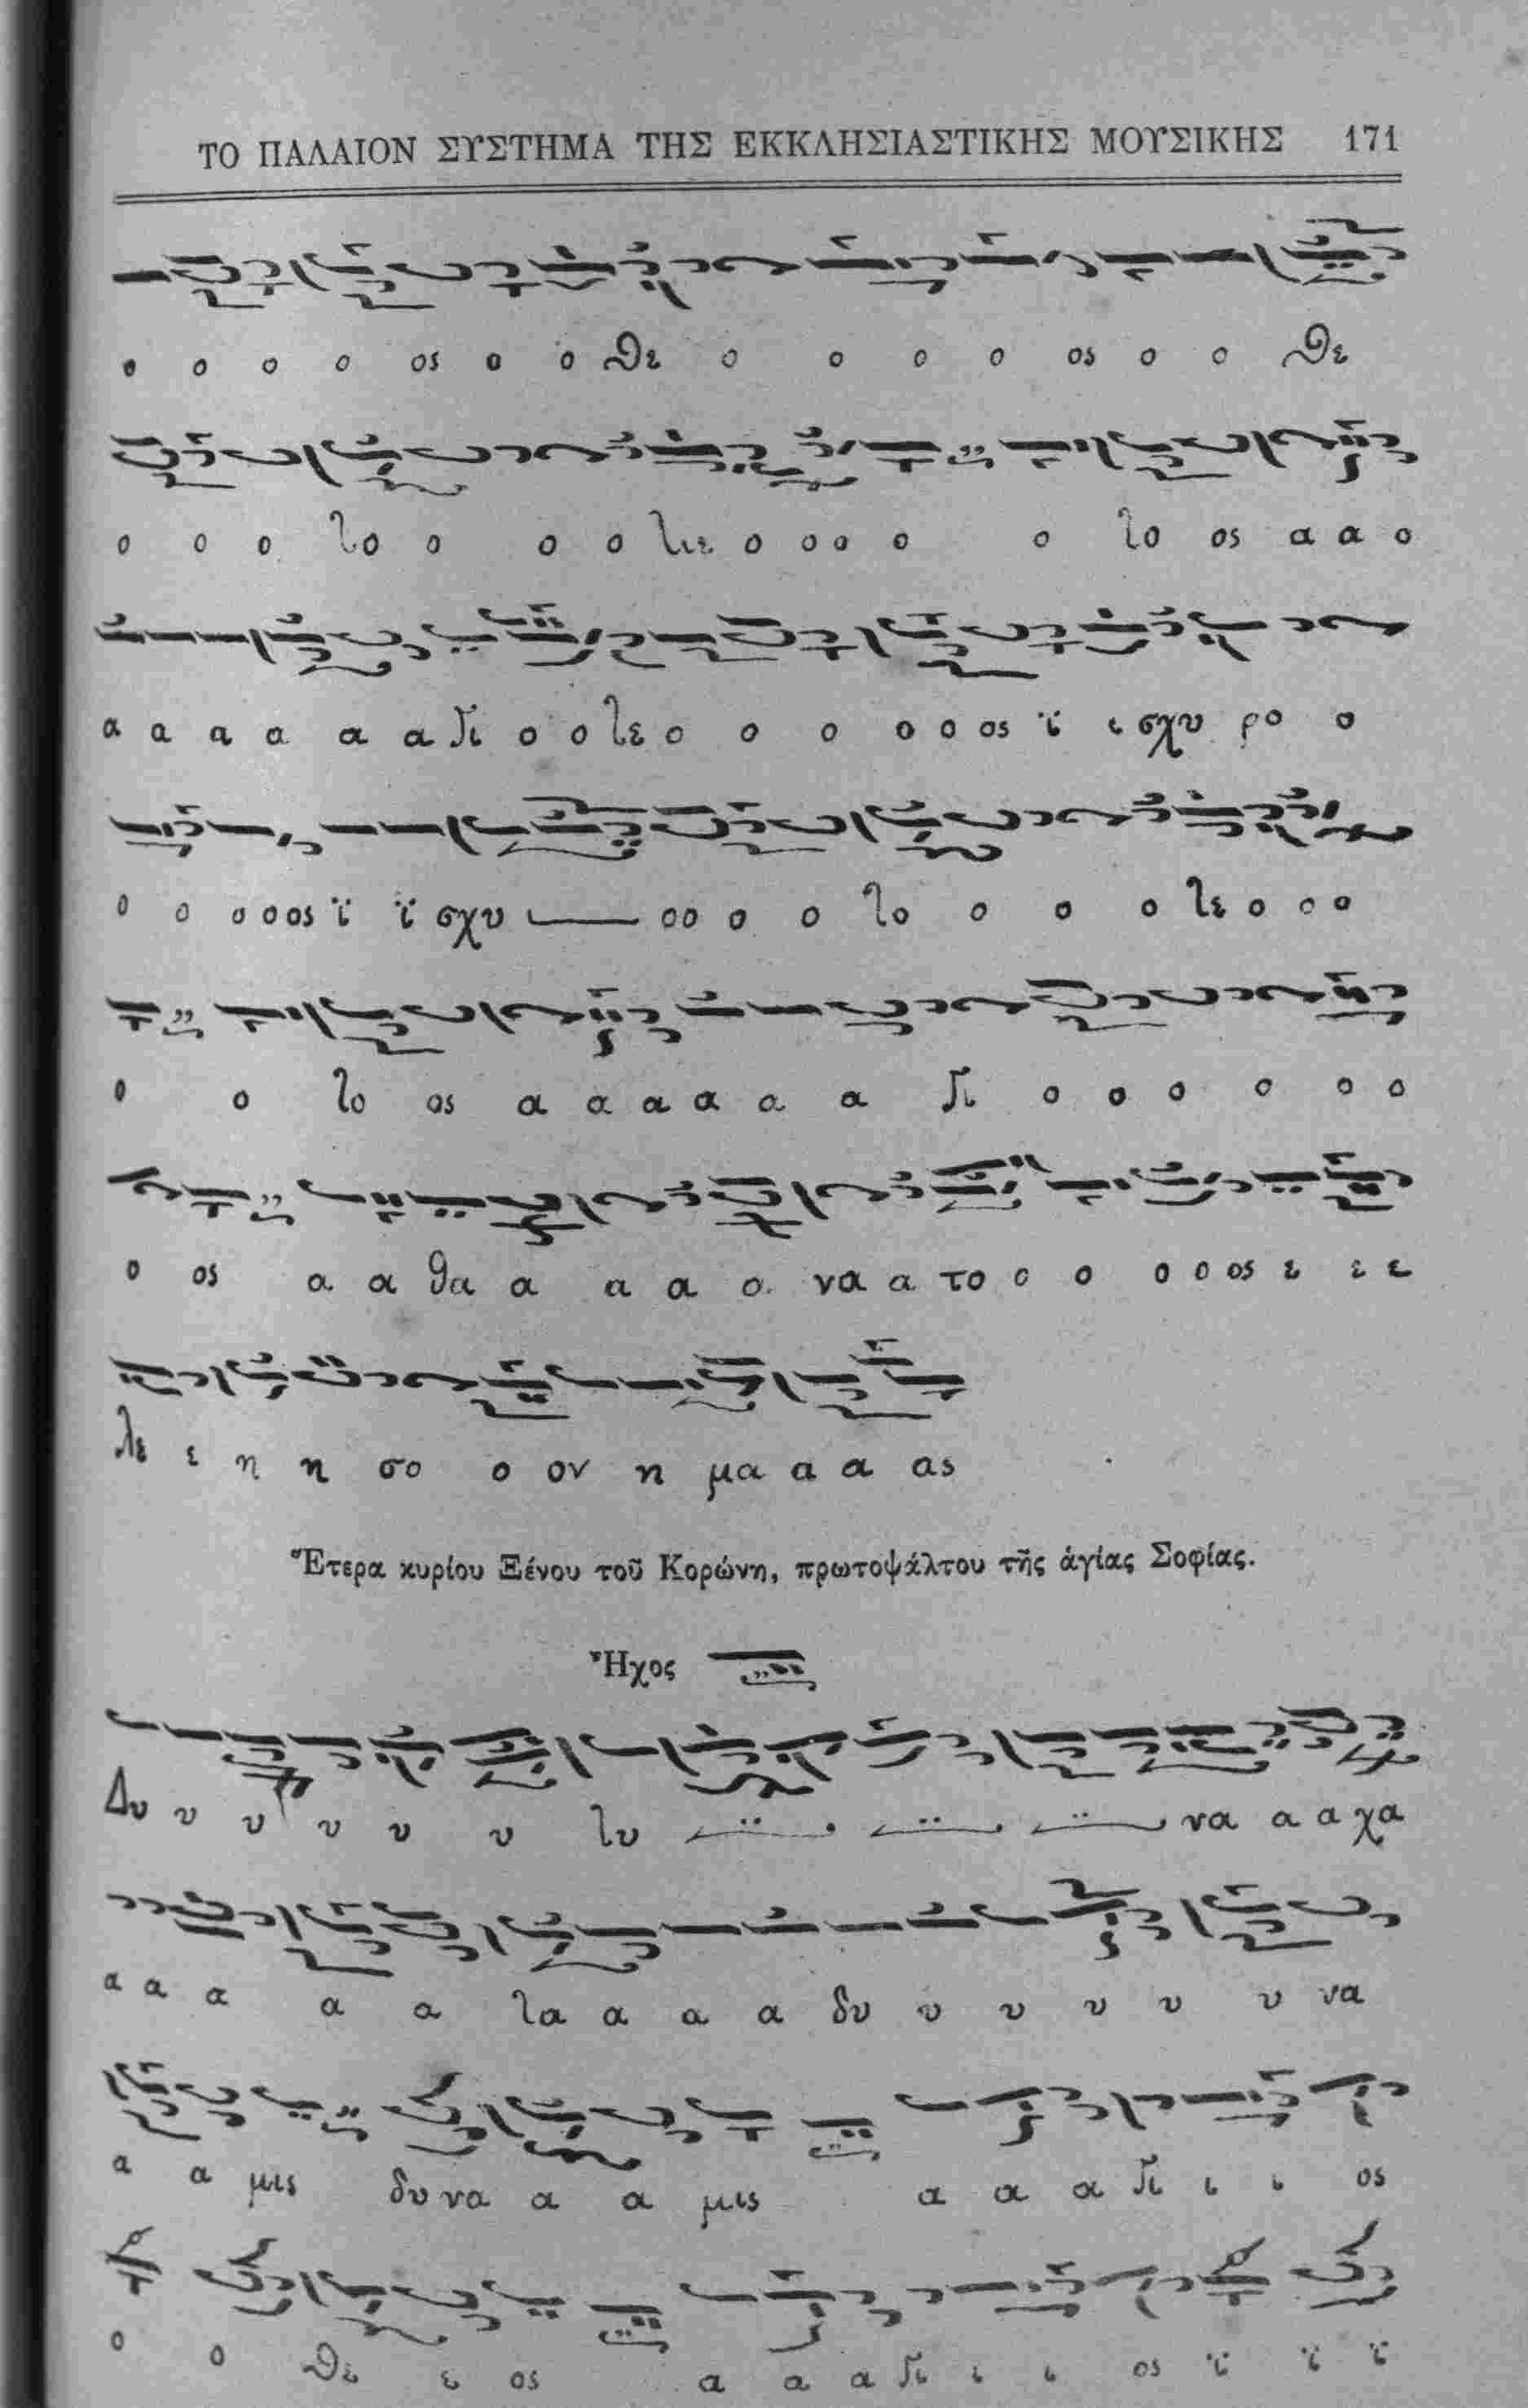 ΤΟ ΠΑΛΑΙΟΝ ΣΥΣΤΗΜΑ ΤΗΣ ΕΚΚΛΗΣΙΑΣΤΙΚΗΣ ΜΟΥΣΙΚΗΣ 171
ο ο ο ο ος ο ο θε ο ο ο ο ος ο ο θε
ο ο ο το ο ο ο ο ο ο ο ο το ος α α ο
α α α α α α ο ο τε ο ο ο ο ο ος ϊ ι σχυ ρο ο
ο ο ο ο ος ϊ ϊ σχυ ο ο ο ο το ο ο ο τε ο ο ο
ο ο το ος α α α α α α γι ο ο ο ο ο ο
ο ος α α θα α α α α να α το ο ο ο ο ος ε ε ε
λε ε η η σο ο ον η μα α α ας
Ἕτερα κυρίου Ξένου τοῦ Κορώνη, πρωτοψάλτου τῆς ἁγίας Σοφίας.
Ἦχος
Δυ υ υ υ υ υ τυ να α α χα
α α α α α τα α α α δυ υ υ υ υ υ να
α α μις δυ να α α μις α α α γι ι ι ος
ο ο θε ε ος α α α γι ι ι ος ϊ ϊ ϊ